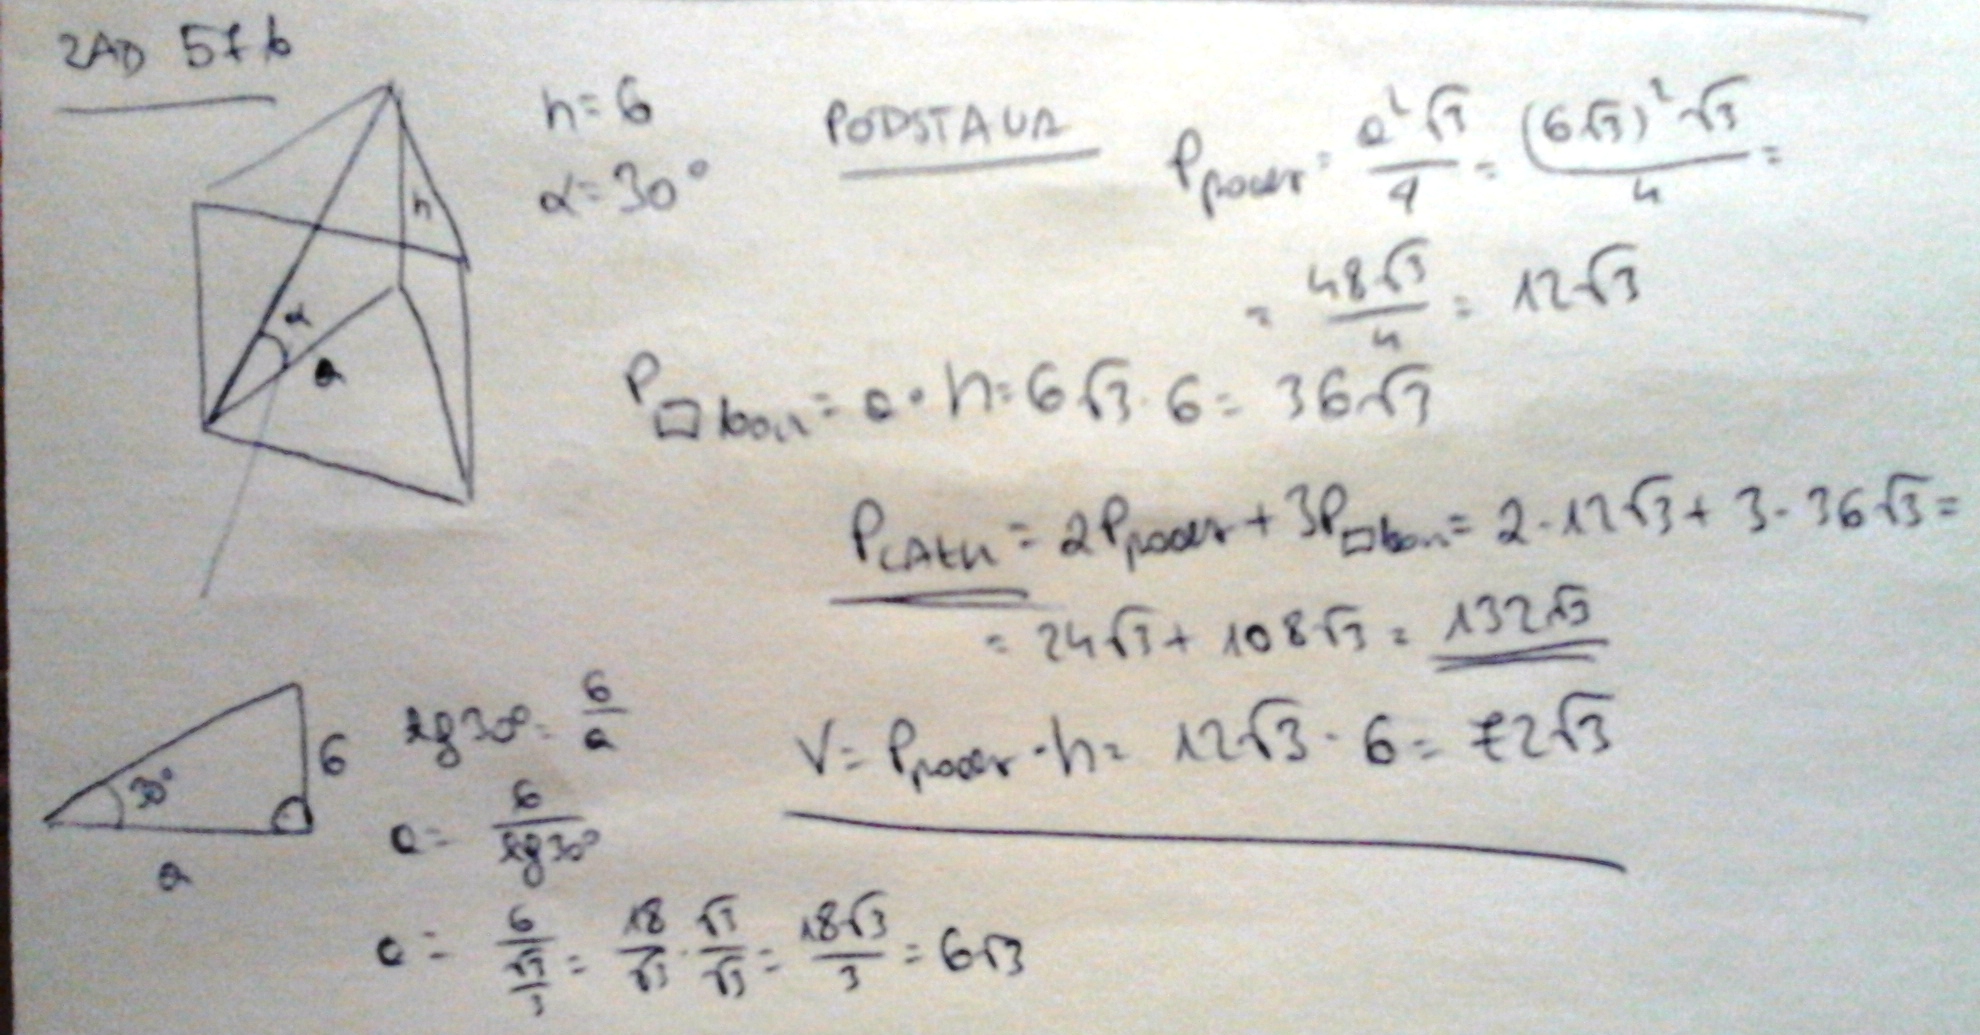 ZAD 57b
h=6
α=30°
h
α
a
PODSTAWA
Ppodst = a²√3/4 = (6√3)²√3/4 =
= 48√3/4 = 12√3
P▭bocz = a·h = 6√3·6 = 36√3
PCAŁK = 2Ppodst + 3P▭bocz = 2·12√3 + 3·36√3 =
= 24√3 + 108√3 = 132√3
V = Ppodst·h = 12√3·6 = 72√3
30°
6
a
tg30° = 6/a
a = 6/tg30°
a = 6/(√3/3) = 18/√3 · √3/√3 = 18√3/3 = 6√3